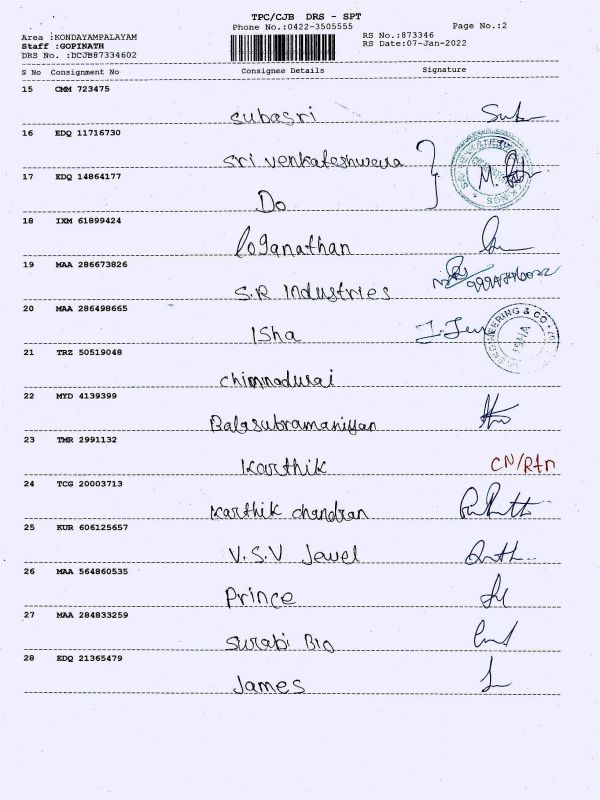 TPC/CJB DRS - SPT
Phone No.:0422-3505555
Page No.:2
Area :KONDAYAMPALAYAM
RS No.:873346
Staff :GOPINATH
RS Date:07-Jan-2022
DRS No. :DCJB87334602
S No Consignment No Consignee Details Signature
15 CMM 723475
Subasri
16 EDQ 11716730
Sri Venkateshwara
17 EDQ 14864177
Do
18 IXM 61899424
Loganathan
19 MAA 286673826
S.R Industries
20 MAA 286498665
ISha
21 TRZ 50519048
Chinnadurai
22 MYD 4139399
Balasubramaniyan
23 TMR 2991132
Karthik CN/Rtn
24 TCG 20003713
Karthik chandran
25 KUR 606125657
V.S.V Jewel
26 MAA 564860535
Prince
27 MAA 284833259
Surabi Bio
28 EDQ 21365479
James